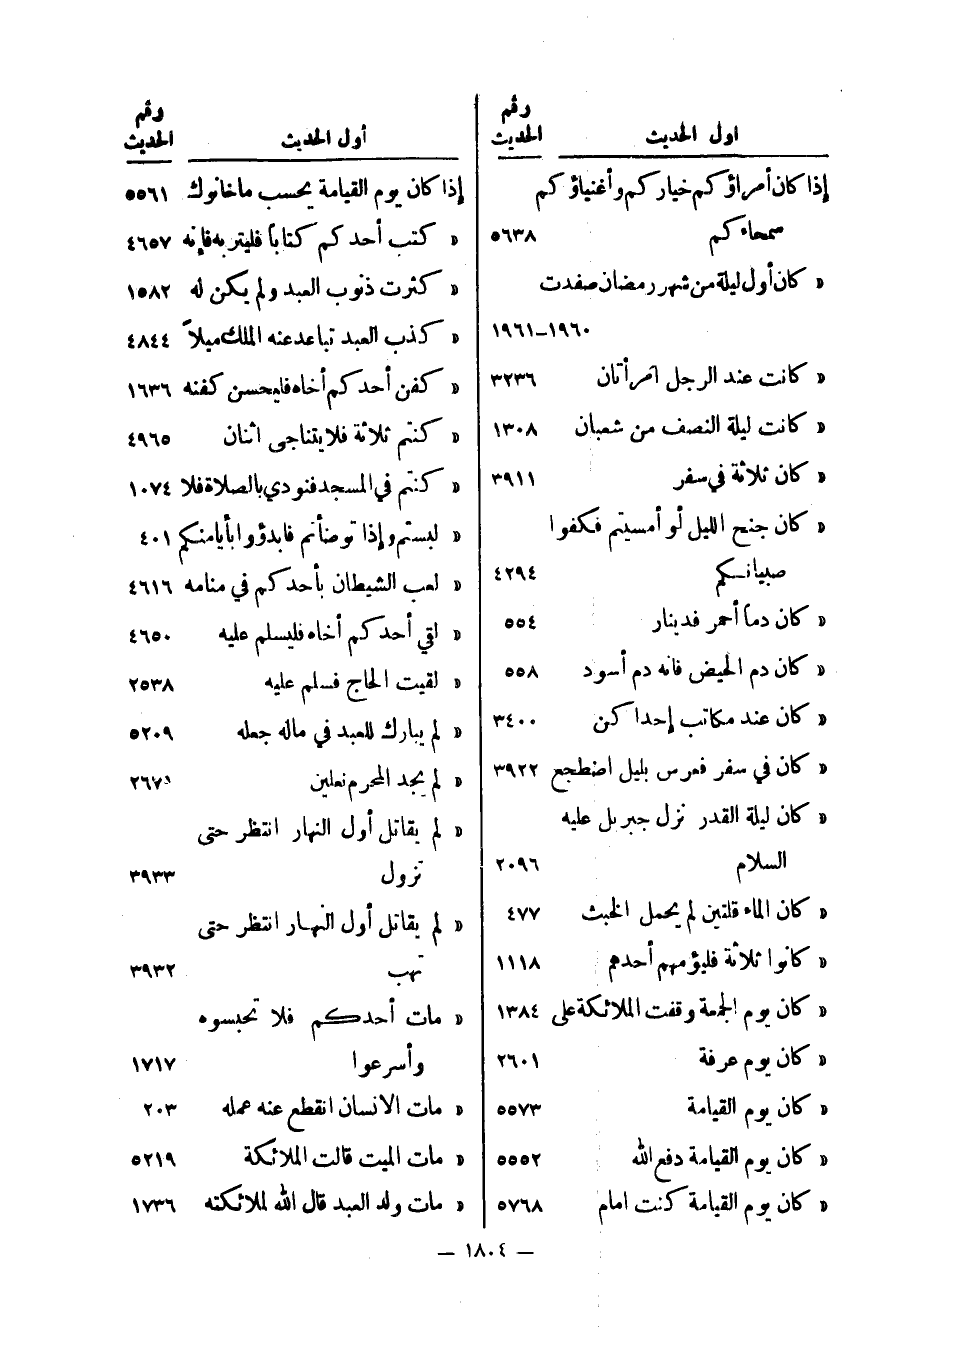 اول الحديث رقم الحديث
إذا كان أمراؤكم خياركم وأغنياؤكم
سمحاءكم ٥٦٣٨
« كان أول ليلة من شهر رمضان صفدت
١٩٦٠–١٩٦١
« كانت عند الرجل امرأتان ٣٢٣٦
« كانت ليلة النصف من شعبان ١٣٠٨
« كان ثلاثة في سفر ٣٩١١
« كان جنح الليل لو أمسيتم فكفوا
صبيانكم ٤٢٩٤
« كان دماً أحمر فدينار ٥٥٤
« كان دم الحيض فانه دم أسود ٥٥٨
« كان عند مكاتب إحداكن ٣٤٠٠
« كان في سفر فعرس بليل اضطجع ٣٩٢٢
« كان ليلة القدر نزل جبريل عليه
السلام ٢٠٩٦
« كان الماء قلتين لم يحمل الخبث ٤٧٧
« كانوا ثلاثة فليؤمهم أحدهم ١١١٨
« كان يوم الجمعة وقفت الملائكة على ١٣٨٤
« كان يوم عرفة ٢٦٠١
« كان يوم القيامة ٥٥٧٣
« كان يوم القيامة دفع الله ٥٥٥٢
« كان يوم القيامة كنت امام ٥٧٦٨
أول الحديث رقم الحديث
إذا كان يوم القيامة يحسب ماخانوك ٥٥٦١
« كتب أحدكم كتاباً فليتربه فإنه ٤٦٥٧
« كثرت ذنوب العبد ولم يكن له ١٥٨٢
« كذب العبد تباعد عنه الملك ميلاً ٤٨٤٤
« كفن أحدكم أخاه فليحسن كفنه ١٦٣٦
« كنتم ثلاثة فلا يتناجى اثنان ٤٩٦٥
« كنتم في المسجد فنودي بالصلاة فلا ١٠٧٤
« لبستم وإذا توضأتم فابدؤوا بأيامنكم ٤٠١
« لعب الشيطان بأحدكم في منامه ٤٦١٦
« لقي أحدكم أخاه فليسلم عليه ٤٦٥٠
« لقيت الحاج فسلم عليه ٢٥٣٨
« لم يبارك للعبد في ماله جعله ٥٢٠٩
« لم يجد المحرم نعلين
« لم يقاتل أول النهار انتظر حتى
تزول ٣٩٣٣
« لم يقاتل أول النهار انتظر حتى
تهب ٣٩٣٢
« مات أحدكم فلا تحبسوه
وأسرعوا ١٧١٧
« مات الانسان انقطع عنه عمله ٢٠٣
« مات الميت قالت الملائكة ٥٢١٩
« مات ولد العبد قال الله لملائكته ١٧٣٦
— ١٨٠٤ —